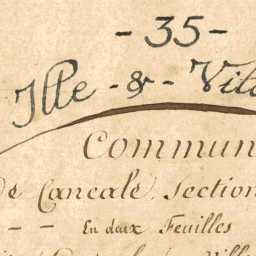 - 35 -
Ille - & - Vila
Commun
De Cancale. Section
- - En deux Feuilles